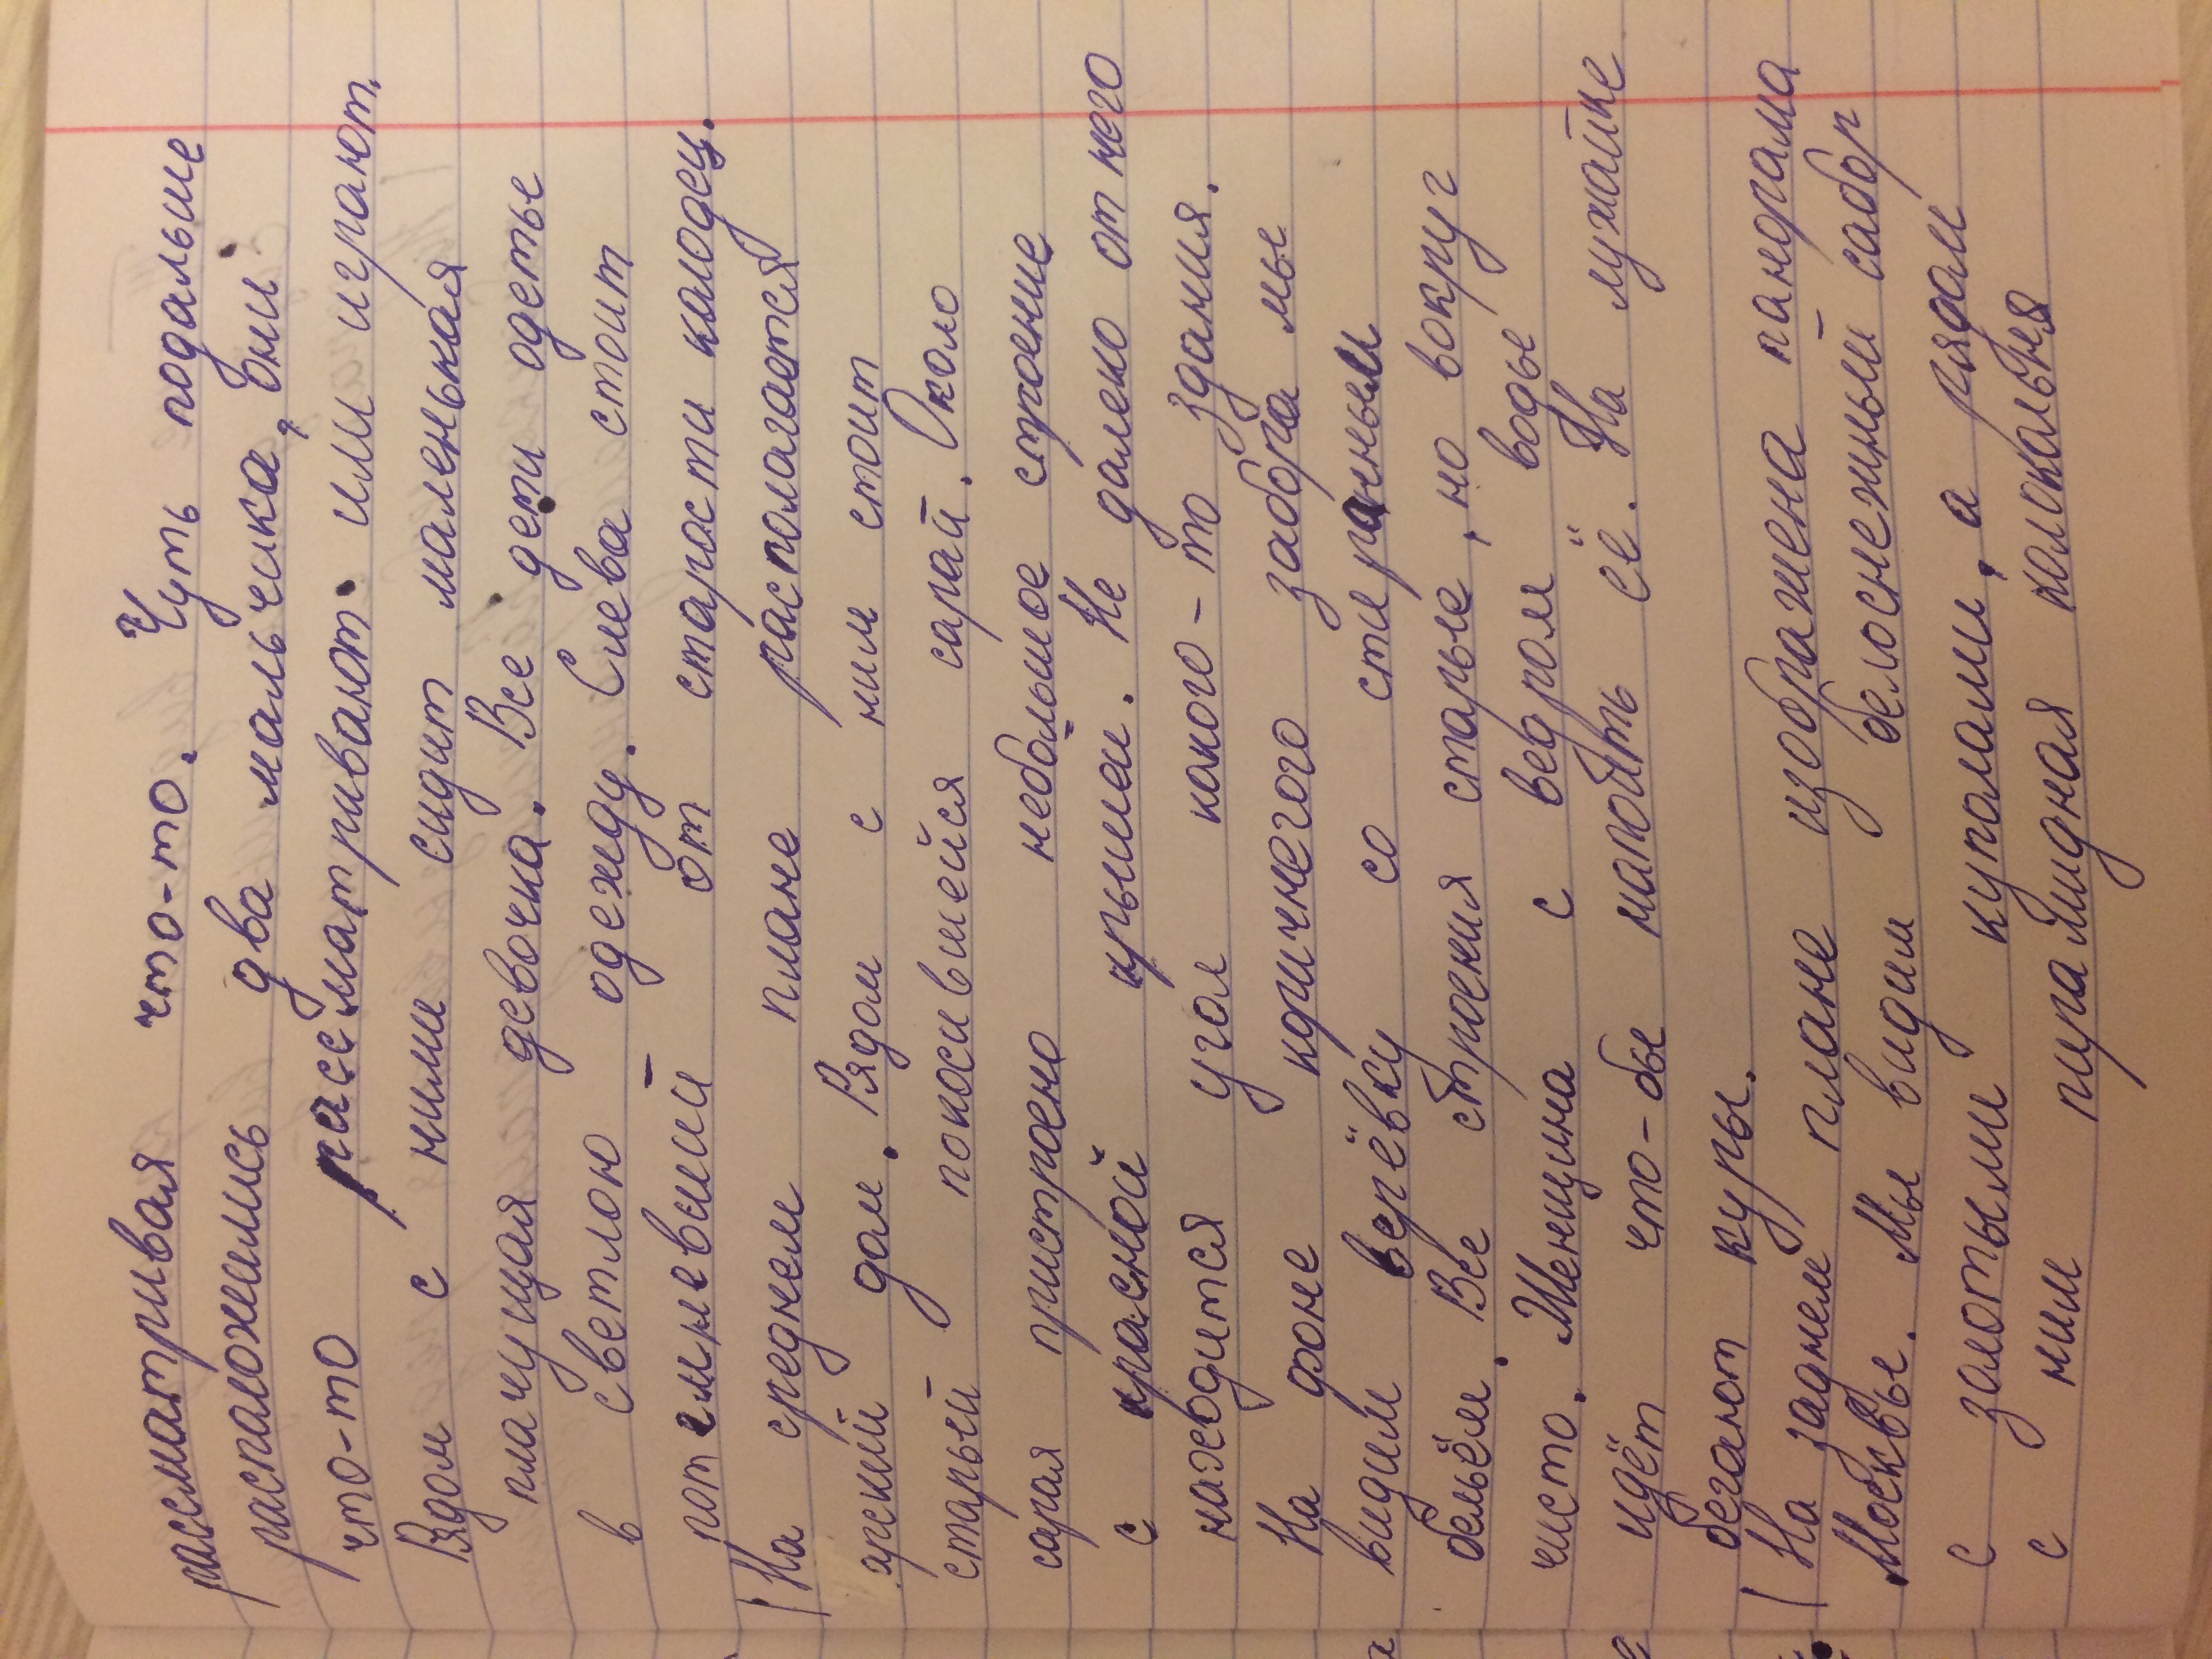 рассматривая что-то. Чуть подальше
расположились два мальчика, они
что-то рассматривают или играют.
Рядом с ними сидит маленькая
плачущая девочка. Все дети одеты
в светлою одежду. Слева стоит
потемневший от старости калодец.
На среднем плане располагается
арский дом. Рядом с ним стоит
старый покосившейся сарай. Около
сарая пристроено небольшое строение
с красной крышеи. Не далеко от него
находится угол какого-то здания.
На фоне коричнегого забора мы
видим верёвку со стираным
бельём. Все строения старые, но вокруг
чисто. Женщина с ведром воды
идёт что-бы набрать её. На лужайке
бегают куры.
На заднем плане изображена панорама
Москвы. Мы видим белоснежный сабор
с золотыми куполами, а рядом
с ним пирамидная колокальня